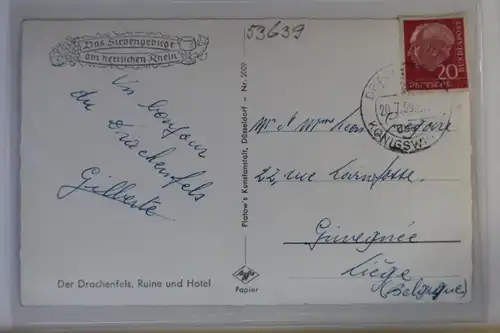 53639
Das Siebengebirge
am herrlichen Rhein
Un bonjour
du Drachenfels
Gilberte
Der Drachenfels, Ruine und Hotel
Platow's Kunstanstalt, Düsseldorf - Nr. 5009
Agfa
Papier
20
DEUTSCHE BUNDESPOST
20.7.
KÖNIGSW
Mr et Mme
22, rue
Grivegnée
Liège
(Belgique)